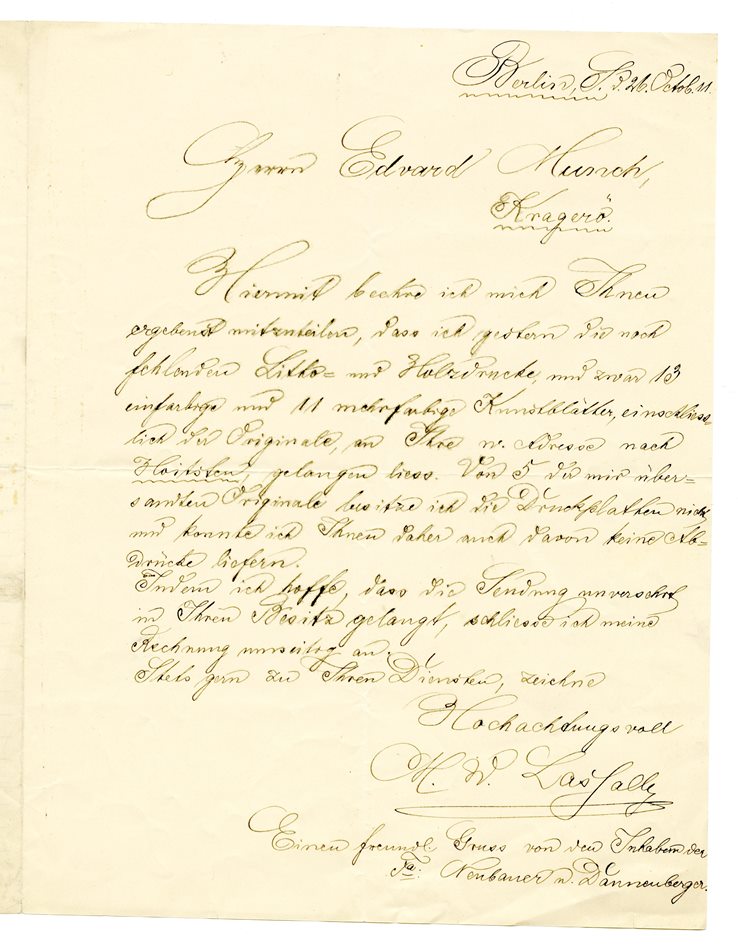 Berlin, S. d. 26. Octob. 11.
Herrn Edvard Munch,
Kragerö.
Hiermit beehre ich mich Ihnen
ergebenst mitzuteilen, dass ich gestern die noch
fehlenden Litho- und Holzdrucke, und zwar 13
einfarbige und 11 mehrfarbige Kunstblätter, einschliess-
lich der Originale, an Ihre w. Adresse nach
Hvitsten, gelangen liess. Von 5 der mir über-
sandten Originale besitze ich die Druckplatten nicht
und konnte ich Ihnen daher auch davon keine Ab-
drücke liefern.
Indem ich hoffe, dass die Sendung unversehrt
in Ihren Besitz gelangt, schliesse ich meine
Rechnung umseitig an.
Stets gern zu Ihren Diensten, zeichne
Hochachtungsvoll
M. W. Lassally
Einen freundl. Gruss von den Inhabern der
Fa: Neubauer u. Dannenberger.